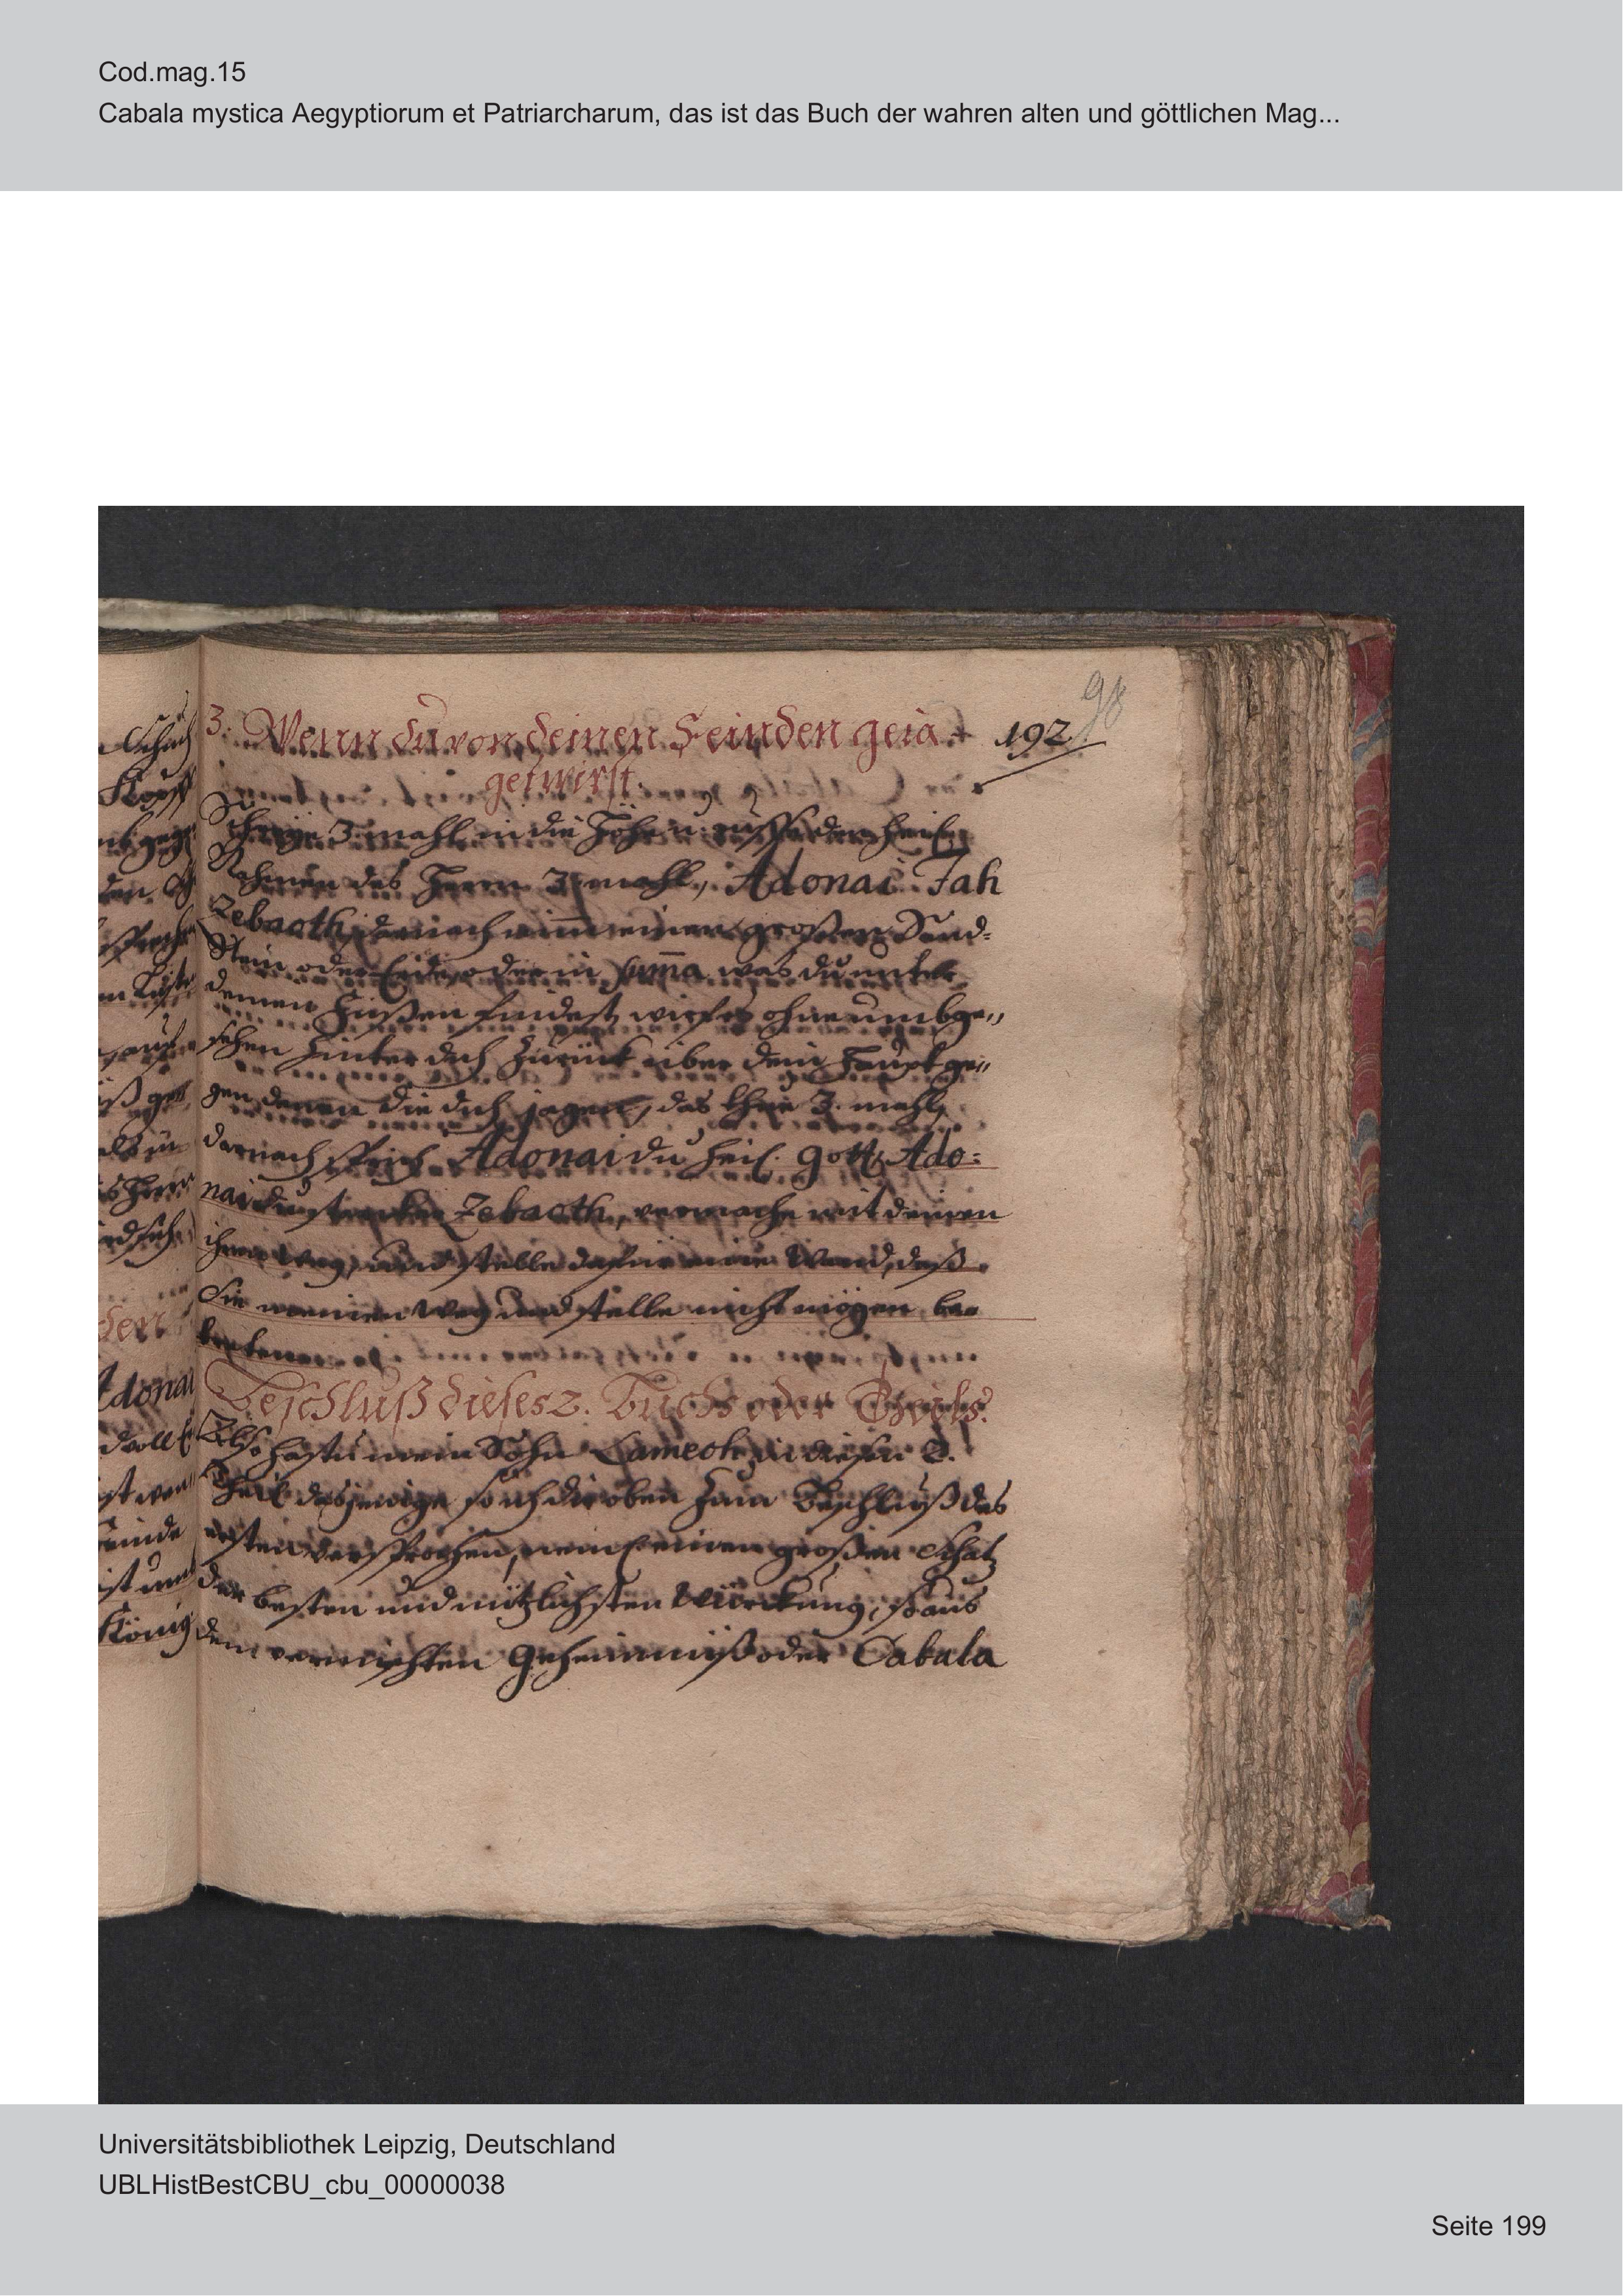 Cod.mag.15
Cabala mystica Aegyptiorum et Patriarcharum, das ist das Buch der wahren alten und göttlichen Mag...
98
192
3. Wenn du von deinen Feinden geia
get wirst.
Schreÿe 3. mahl in die Höhe u: ruffe den heil.
Nahmen des Herrn 3. mahl, Adonai Jah
Zebaoth, darnach nim̄ einen großen Sand-
Stein oder Erde, oder in sum̄a was du unter
deinen Füßen findest, wirf es ohne umbge„
sehen hinter dich zurück über dein Haupt ge„
gen denen die dich jagen, das thue 3. mahl,
darnach sprich Adonai du heil. Gott, Ado:
nai du starker Zebaoth, vermache mit deinen
ihren Weg, und stelle dafür eine Wand, daß
Sie meinen Weg und stelle nicht mögen be
tretten
Beschluß dieses 2. Buchs oder Theils.
Also hastu mein Sohn Lamech, in diesen 2.
Theil dasjenige so ich dir oben zum Beschluß des
ersten versprochen, nemb einen großen Schatz
der besten und nützlichsten Würckung, so aus
dem vermischten Geheimniß oder Cabala
den
Adonai
König
Universitätsbibliothek Leipzig, Deutschland
UBLHistBestCBU_cbu_00000038
Seite 199